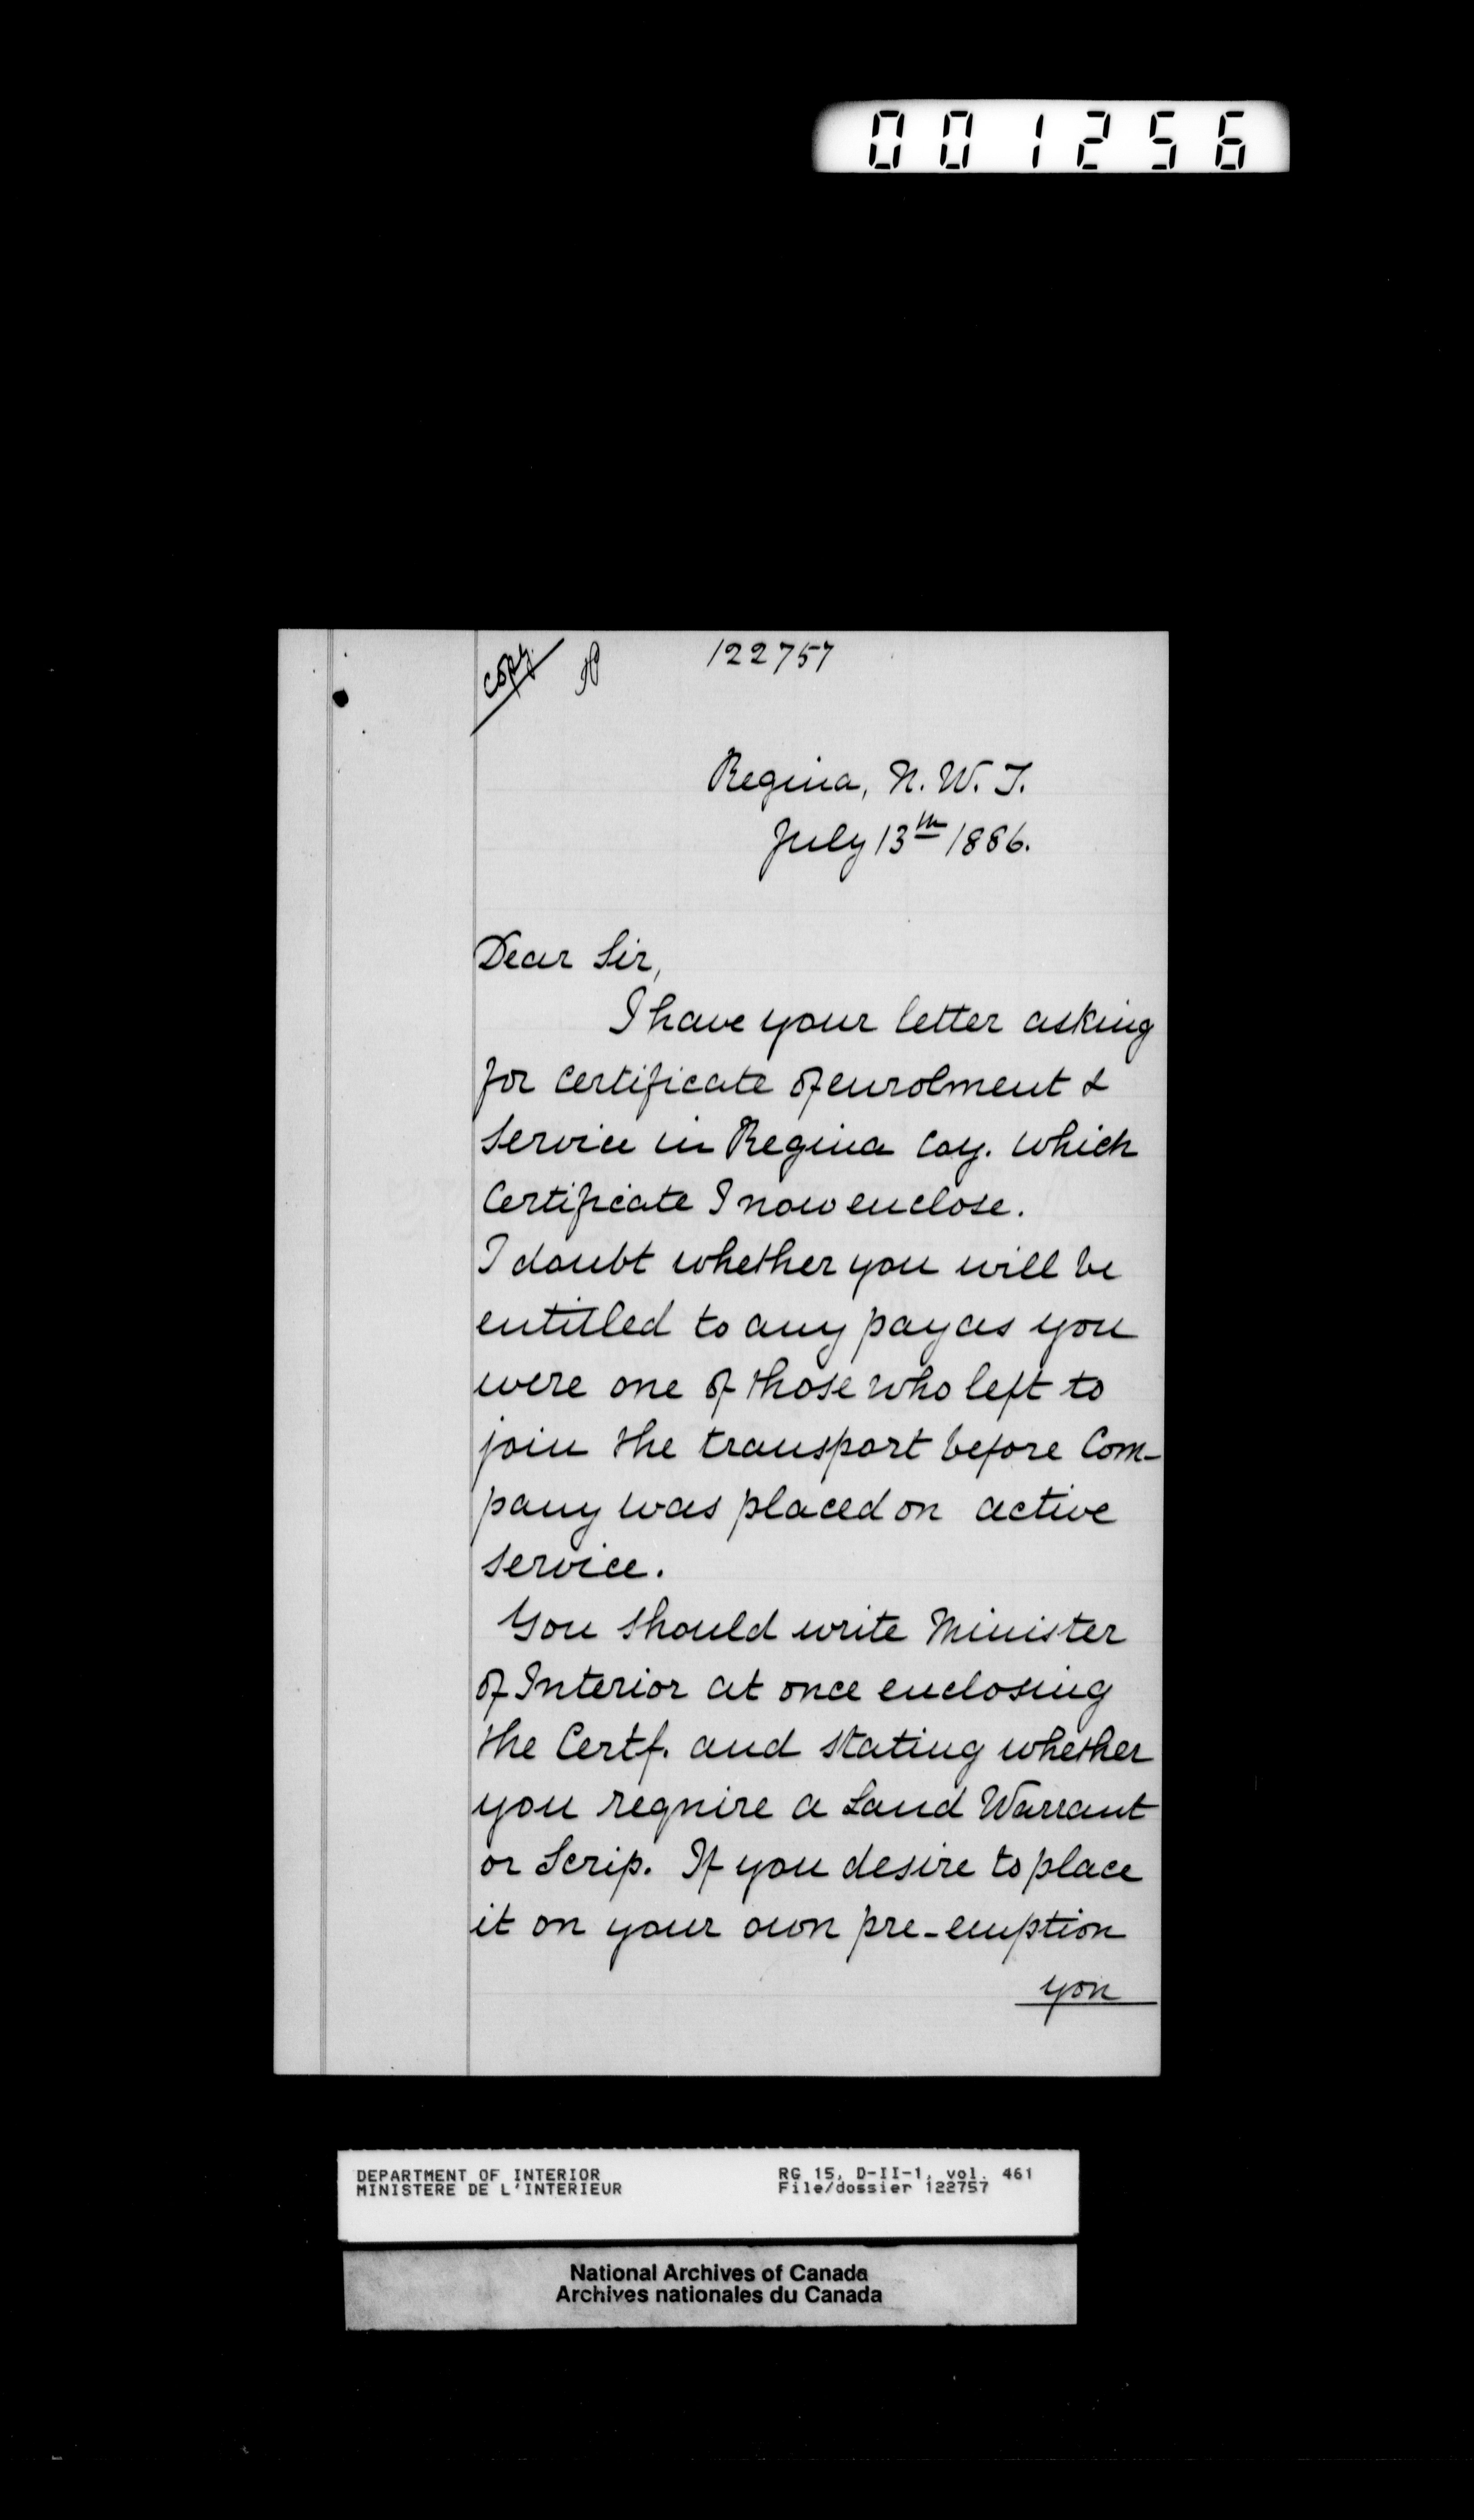 001256
Copy
122757
Regina, N. W. T.
July 13th 1886.
Dear Sir,
I have your letter asking
for certificate of enrolment &
service in Regina Coy. which
Certificate I now enclose.
I doubt whether you will be
entitled to any pay as you
were one of those who left to
join the transport before Com-
pany was placed on active
service.
You should write Minister
of Interior at once enclosing
the Certf. and stating whether
you require a Land Warrant
or Scrip. If you desire to place
it on your own pre-emption
you
DEPARTMENT OF INTERIOR
MINISTERE DE L'INTERIEUR
RG 15, D-II-1, vol. 461
File/dossier 122757
National Archives of Canada
Archives nationales du Canada